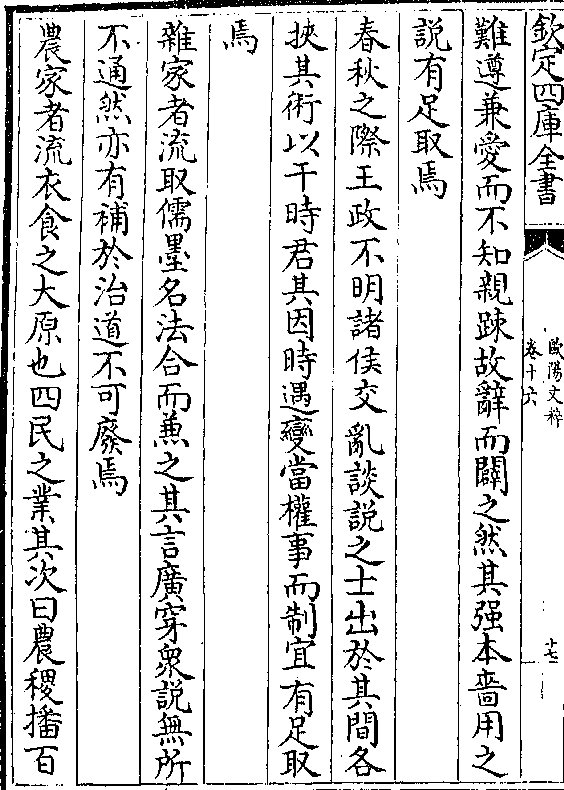 欽定四庫全書
歐陽文粹
卷十六
十七
難遵兼愛而不知親踈故辭而闢之然其强本嗇用之
説有足取焉
春秋之際王政不明諸侯交亂談説之士出於其間各
挾其術以干時君其因時遇變當權事而制宜有足取
焉
雜家者流取儒墨名法合而兼之其言廣穿衆説無所
不通然亦有補於治道不可廢焉
農家者流衣食之大原也四民之業其次曰農稷播百